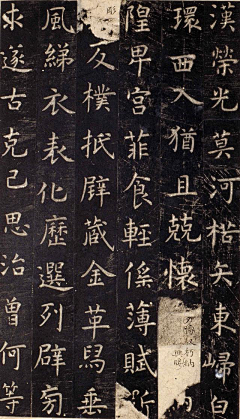 漢榮光莫河楛矢東歸白
環西入猶且兢懷
隍卑宮菲食輕傜薄賦斲
彫反樸抵璧藏金革舄垂
風綈衣表化歷選列辟旁
求遂古克己思治曾何等